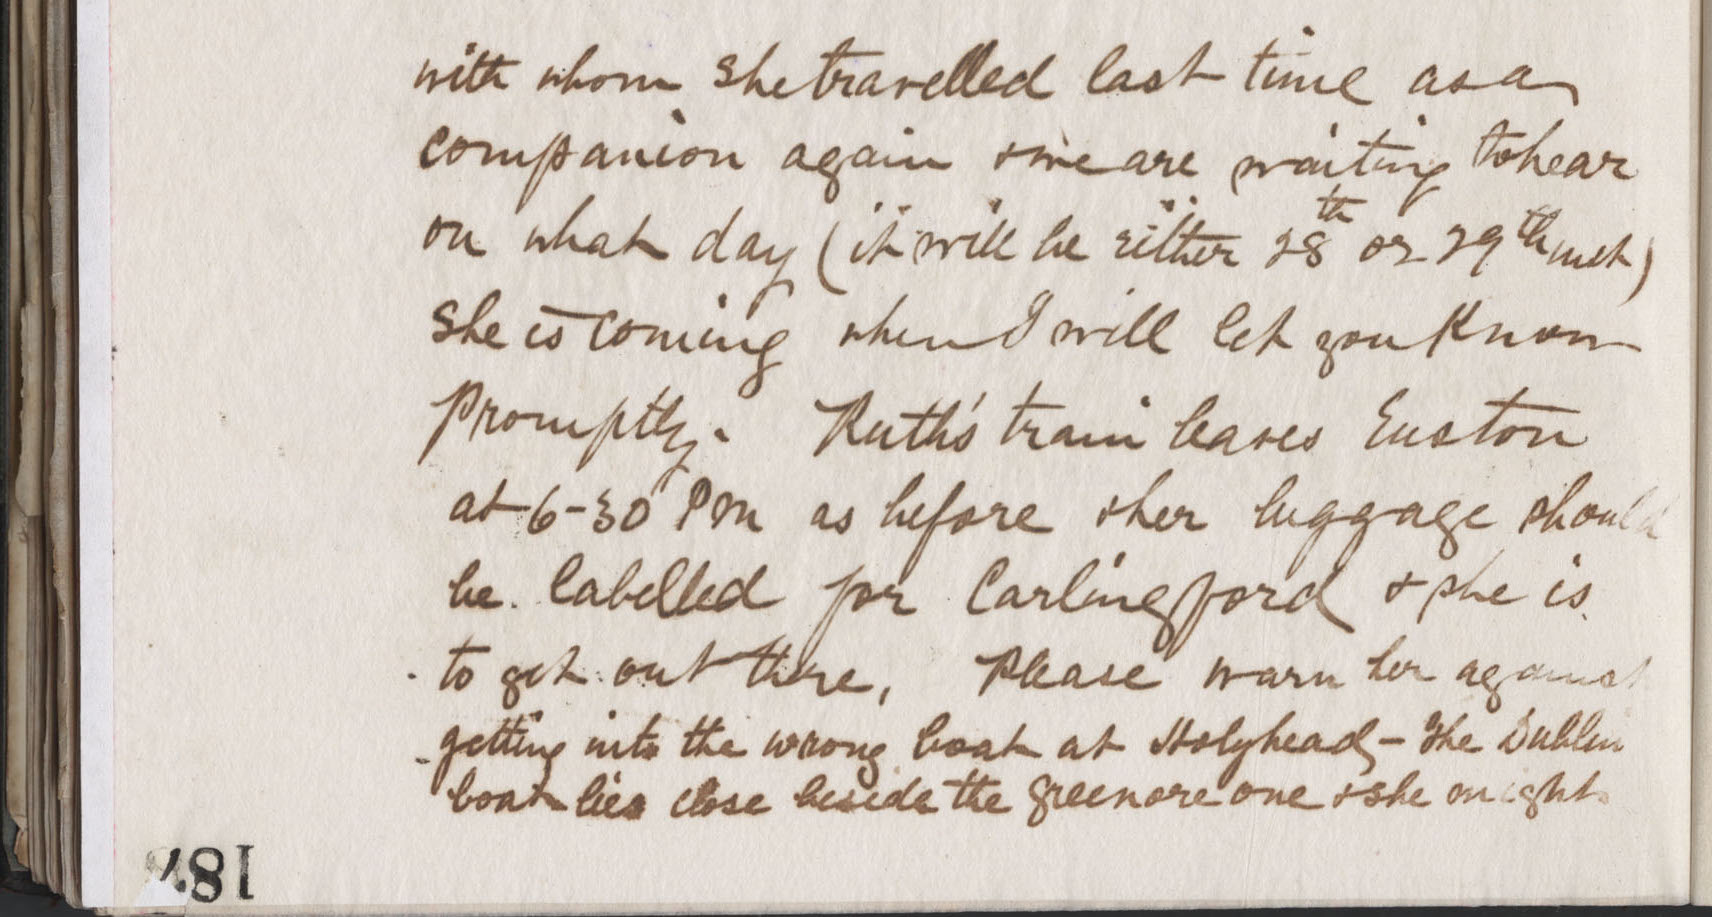 with whom she travelled last time as a
companion again & we are waiting to hear
on what day (it will be either 28th or 29th inst)
she is coming when I will let you know
promptly. Ruth's train leaves Euston
at 6-30 PM as before & her luggage should
be labelled for Carlingford & she is
to get out there, Please warn her against
getting into the wrong boat at Holyhead - The Dublin
boat lies close beside the Greenore one & she might